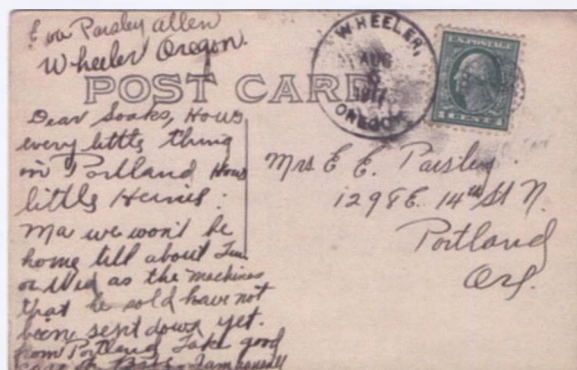 Eva Paisley Allen
Wheeler Oregon.
POST CARD
WHEELER,
AUG
OREGON.
U.S. POSTAGE
Dear Soaks, Hows
every little thing
in Portland Hows
little Heinies.
Ma we won't be
home till about Tue.
or Wed as the machines
that he sold have not
been sent down yet.
from Portland Take good
care
Mrs E. E. Paisley.
1298 E. 14th St N.
Portland
Ore.